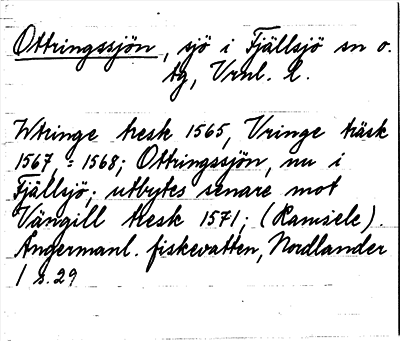 Ottringssjön, sjö i Fjällsjö sn o.
tg, Vrnl. L.
Wtringe tresk 1565, Vringe träsk
1567, = 1568; Ottringssjön, nu i
Fjällsjö; utbytes senare mot
Vängill tresk 1571; (Ramsele).
Ångermanl. fiskevatten, Nordlander
1 s. 29